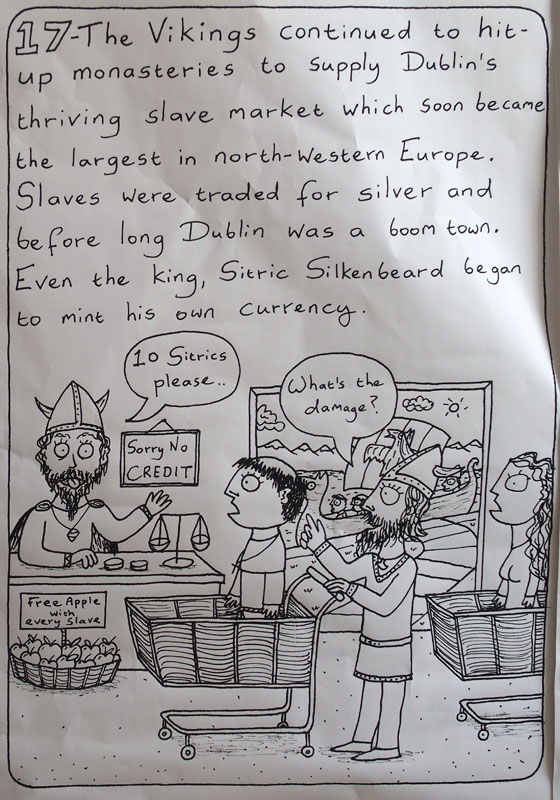 17-The Vikings continued to hit-
up monasteries to supply Dublin's
thriving slave market which soon became
the largest in north-Western Europe.
Slaves were traded for silver and
before long Dublin was a boom town.
Even the king, Sitric Silkenbeard began
to mint his own currency.
10 Sitrics
please..
What's the
damage?
Sorry No
CREDIT
Free Apple
with
every slave